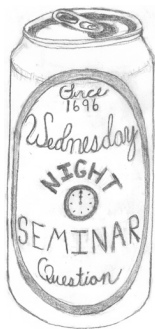 Circa
1696
Wednesday
NIGHT
SEMINAR
Question